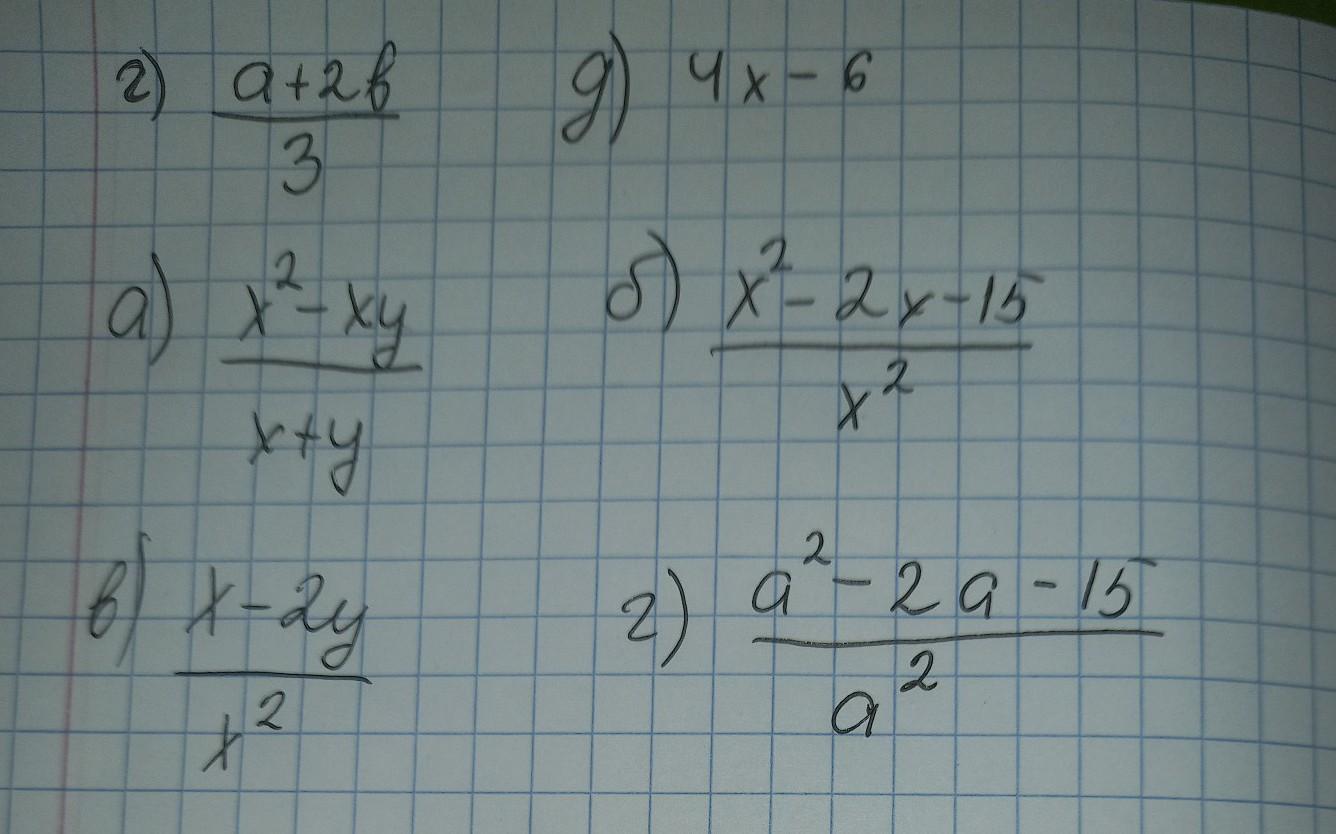 г) (a+2b)/3 д) 4x-6
а) (x²-xy)/(x+y) б) (x²-2x-15)/x²
в) (x-2y)/x² г) (a²-2a-15)/a²